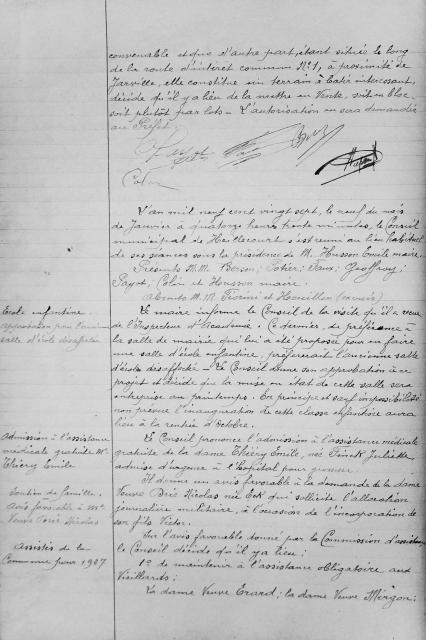 convenable et que d'autre part, étant située le long
de la route d'intérêt commun N° 1, à proximité de
Jarville, elle constitue un terrain à bâtir intéressant,
décide qu'il y a lieu de la mettre en vente, soit en bloc,
soit plutôt par lots — L'autorisation en sera demandée
au Préfet.
Colin
L'an mil neuf cent vingt sept, le neuf du mois
de Janvier à quatorze heures trente minutes, le Conseil
municipal de Heillecourt s'est réuni au lieu habituel
de ses séances sous la présidence de M. Husson Emile maire.
Présents M.M. Berson; Potier; Faux; Geoffroy;
Payot, Colin et Husson maire.
absents M.M. Florini et Houillon (excusés)
Ecole enfantine.
approbation pour l'ancienne
salle d'école désaffectée
Le maire informe le Conseil de la visite qu'il a reçue
de l'Inspecteur d'Académie. Ce dernier, de préférence à
la salle de mairie qui lui a été proposée pour en faire
une salle d'école enfantine, préférerait l'ancienne salle
d'école désaffectée — Le Conseil donne son approbation à ce
projet et décide que la mise en état de cette salle sera
entreprise au printemps. En principe et sauf impossibilité
non prévue l'inauguration de cette classe enfantine aura
lieu à la rentrée d'Octobre.
Admission à l'assistance
médicale gratuite Me
Thiéry Emile
Le Conseil prononce l'admission à l'assistance médicale
gratuite de la dame Thiéry Emile, née Finck Juliette
admise d'urgence à l'hôpital pour
Soutien de famille.
Avis favorable à Me
Veuve Doré Nicolas
Il donne un avis favorable à la demande de la dame
Veuve Doré Nicolas née Eck qui sollicite l'allocation
journalière militaire, à l'occasion de l'incorporation de
son fils Victor.
Assistés de la
Commune pour 1927
Sur l'avis favorable donné par la Commission d'assistance
le Conseil décide qu'il y a lieu:
1° de maintenir à l'assistance obligatoire aux
Vieillards:
La dame Veuve Erard; la dame Veuve Mirgon;